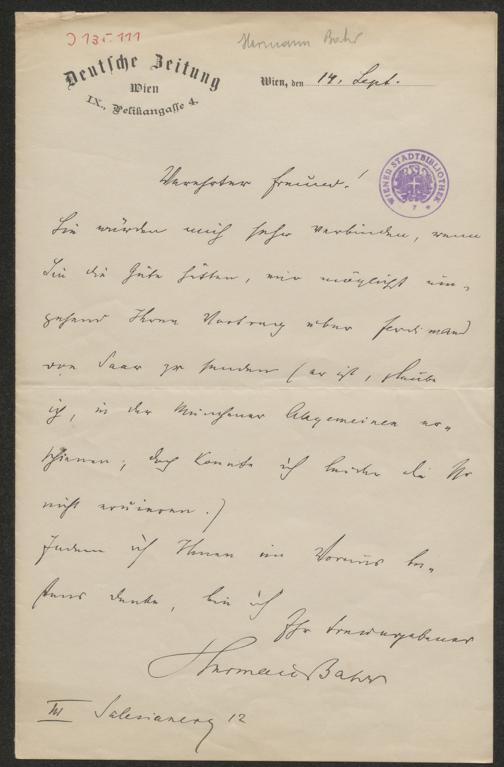 J 135.111
Hermann Bahr
Deutsche Zeitung
Wien
IX., Pelikangasse 4.
Wien, den 14. Sept.
WIENER STADTBIBLIOTHEK
Verehrter Freund!
Sie würden mich sehr verbinden, wenn
Sie die Güte hätten, mir möglichst um-
gehend Ihren Vortrag über Ferdinand
von Saar zu senden (er ist, glaube
ich, in der Münchener Allgemeinen er-
schienen; doch konnte ich leider die Nr
nicht eruieren.)
Indem ich Ihnen im Voraus be-
stens danke, bin ich
Ihr treuergebener
Hermann Bahr
III Salesianerg 12